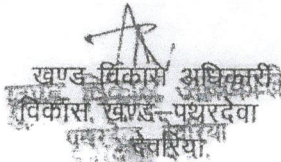 खण्ड विकास अधिकारी
विकास खण्ड–पथरदेवा
देवरिया